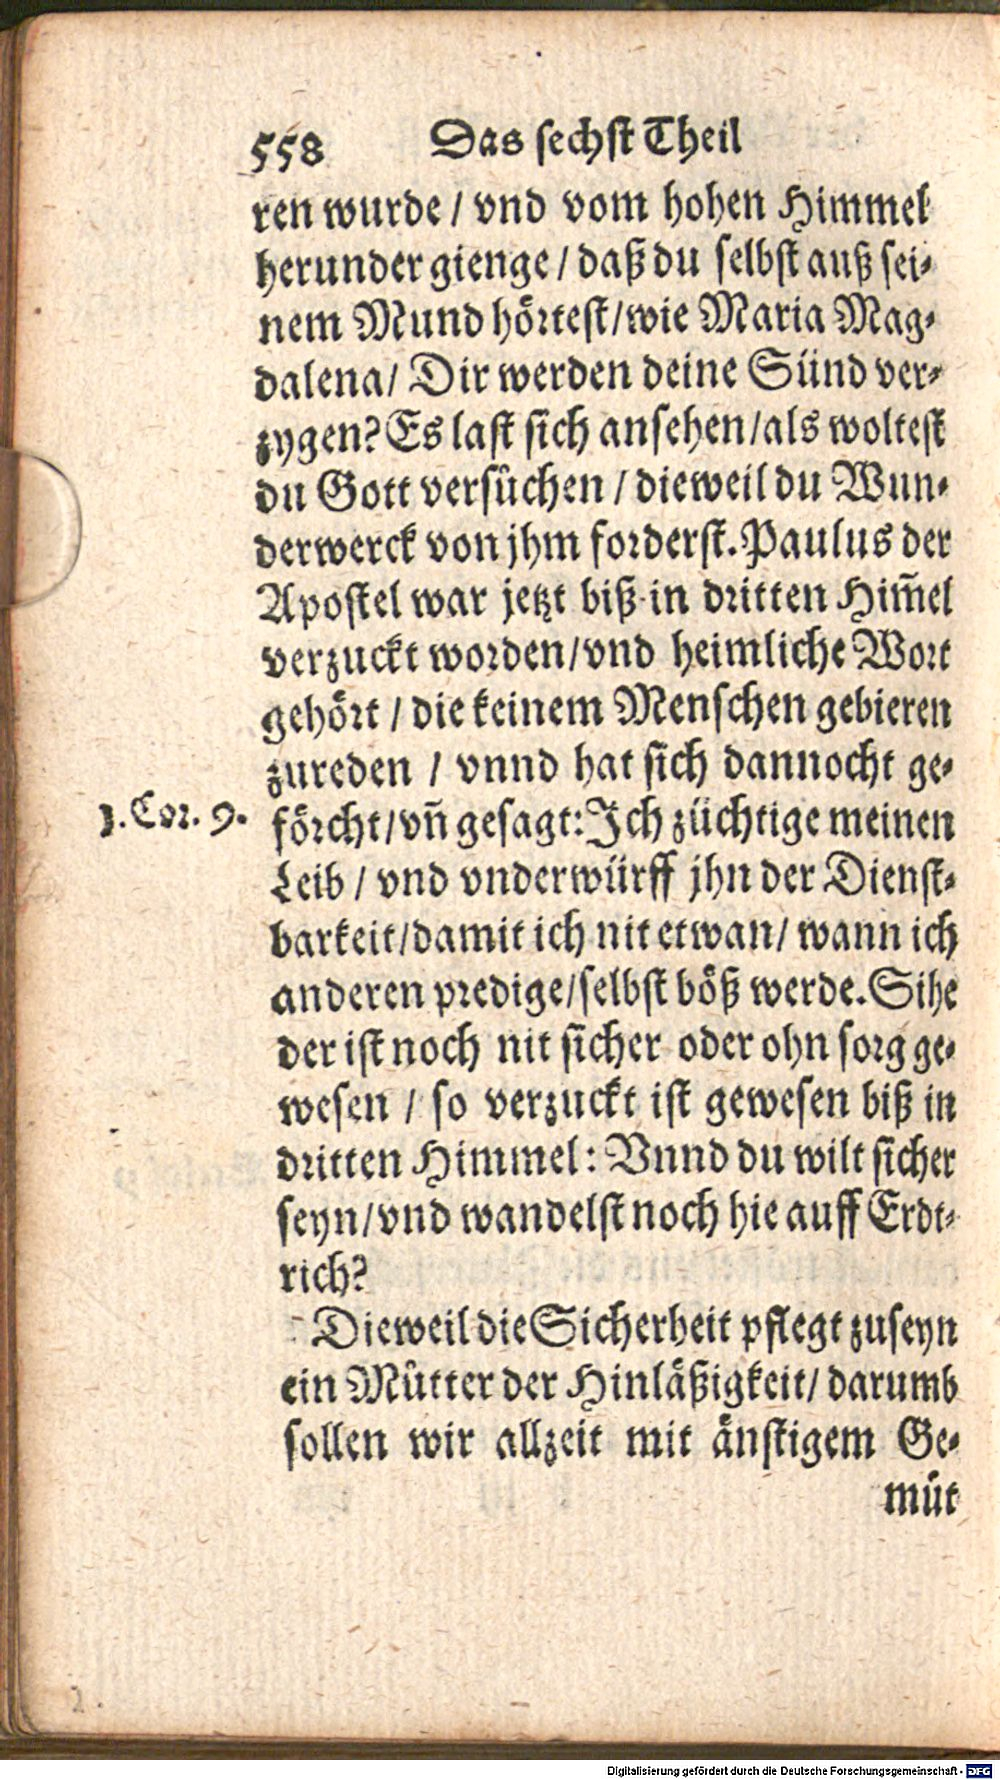 558 Das sechst Theil
ren wurde / vnd vom hohen Himmel
herunder gienge / daß du selbst auß sei-
nem Mund hörtest / wie Maria Mag-
dalena / Dir werden deine Sünd ver-
zygen? Es last sich ansehen / als woltest
du Gott versůchen / dieweil du Wun-
derwerck von jhm forderst. Paulus der
Apostel war jetzt biß in dritten Him̃el
verzuckt worden / vnd heimliche Wort
gehört / die keinem Menschen gebieren
zureden / vnnd hat sich dannocht ge-
1. Cor. 9. förcht / vñ gesagt: Ich züchtige meinen
Leib / vnd vnderwürff jhn der Dienst-
barkeit / damit ich nit etwan / wann ich
anderen predige / selbst böß werde. Sihe
der ist noch nit sicher oder ohn sorg ge-
wesen / so verzuckt ist gewesen biß in
dritten Himmel: Vnnd du wilt sicher
seyn / vnd wandelst noch hie auff Erdt-
rich?
Dieweil die Sicherheit pflegt zuseyn
ein Můtter der Hinläßigkeit / darumb
sollen wir allzeit mit änstigem Ge-
můt
Digitalisierung gefördert durch die Deutsche Forschungsgemeinschaft - DFG